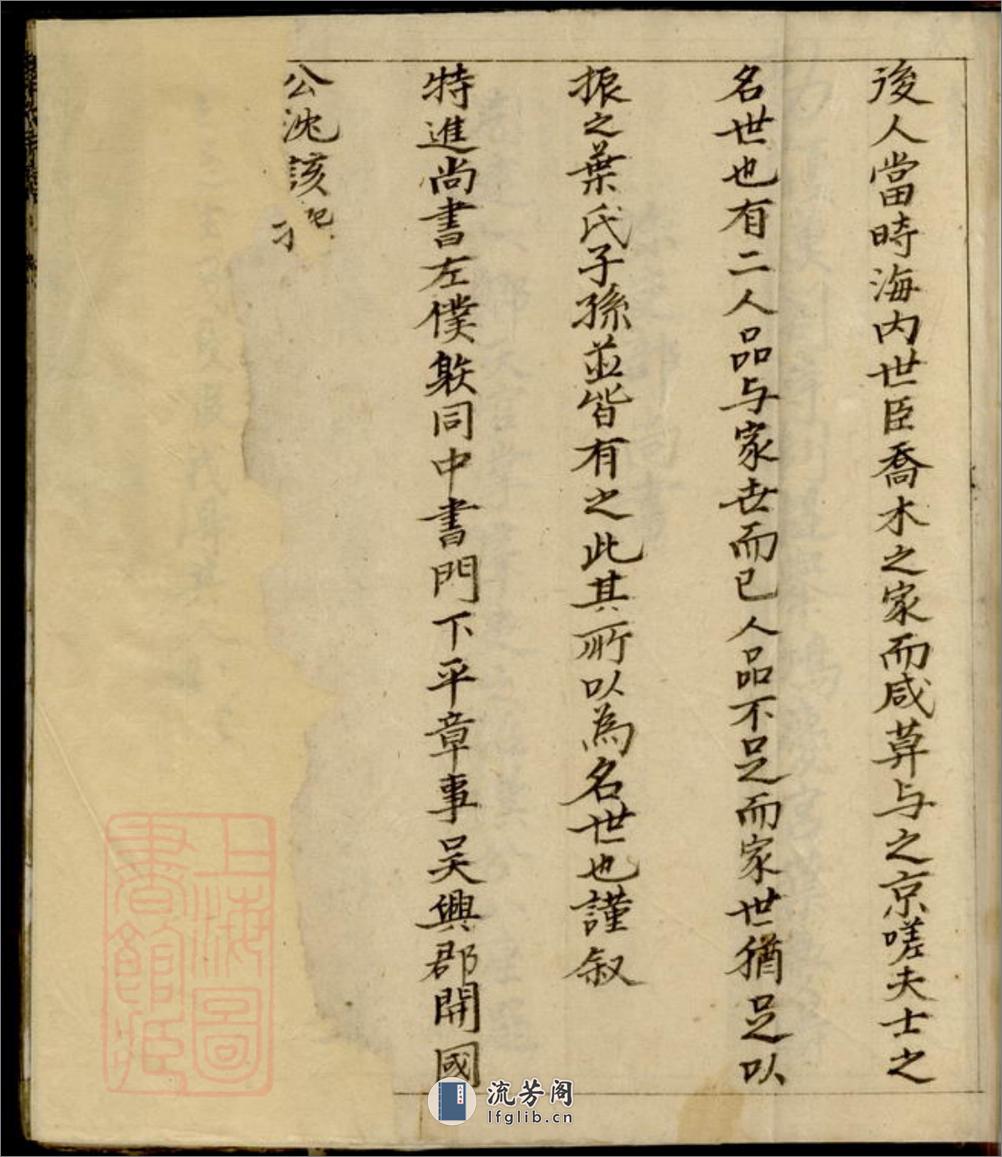 後人當時海内世臣喬木之家而咸莫与之京嗟夫士之
名世也有二人品与家世而已人品不足而家世猶足以
振之葉氏子孫並皆有之此其所以為名世也謹叙
特進尚書左僕躲同中書門下平章事吴興郡開國
公沈該
上海圖
書館藏
流芳阁
lfglib.cn